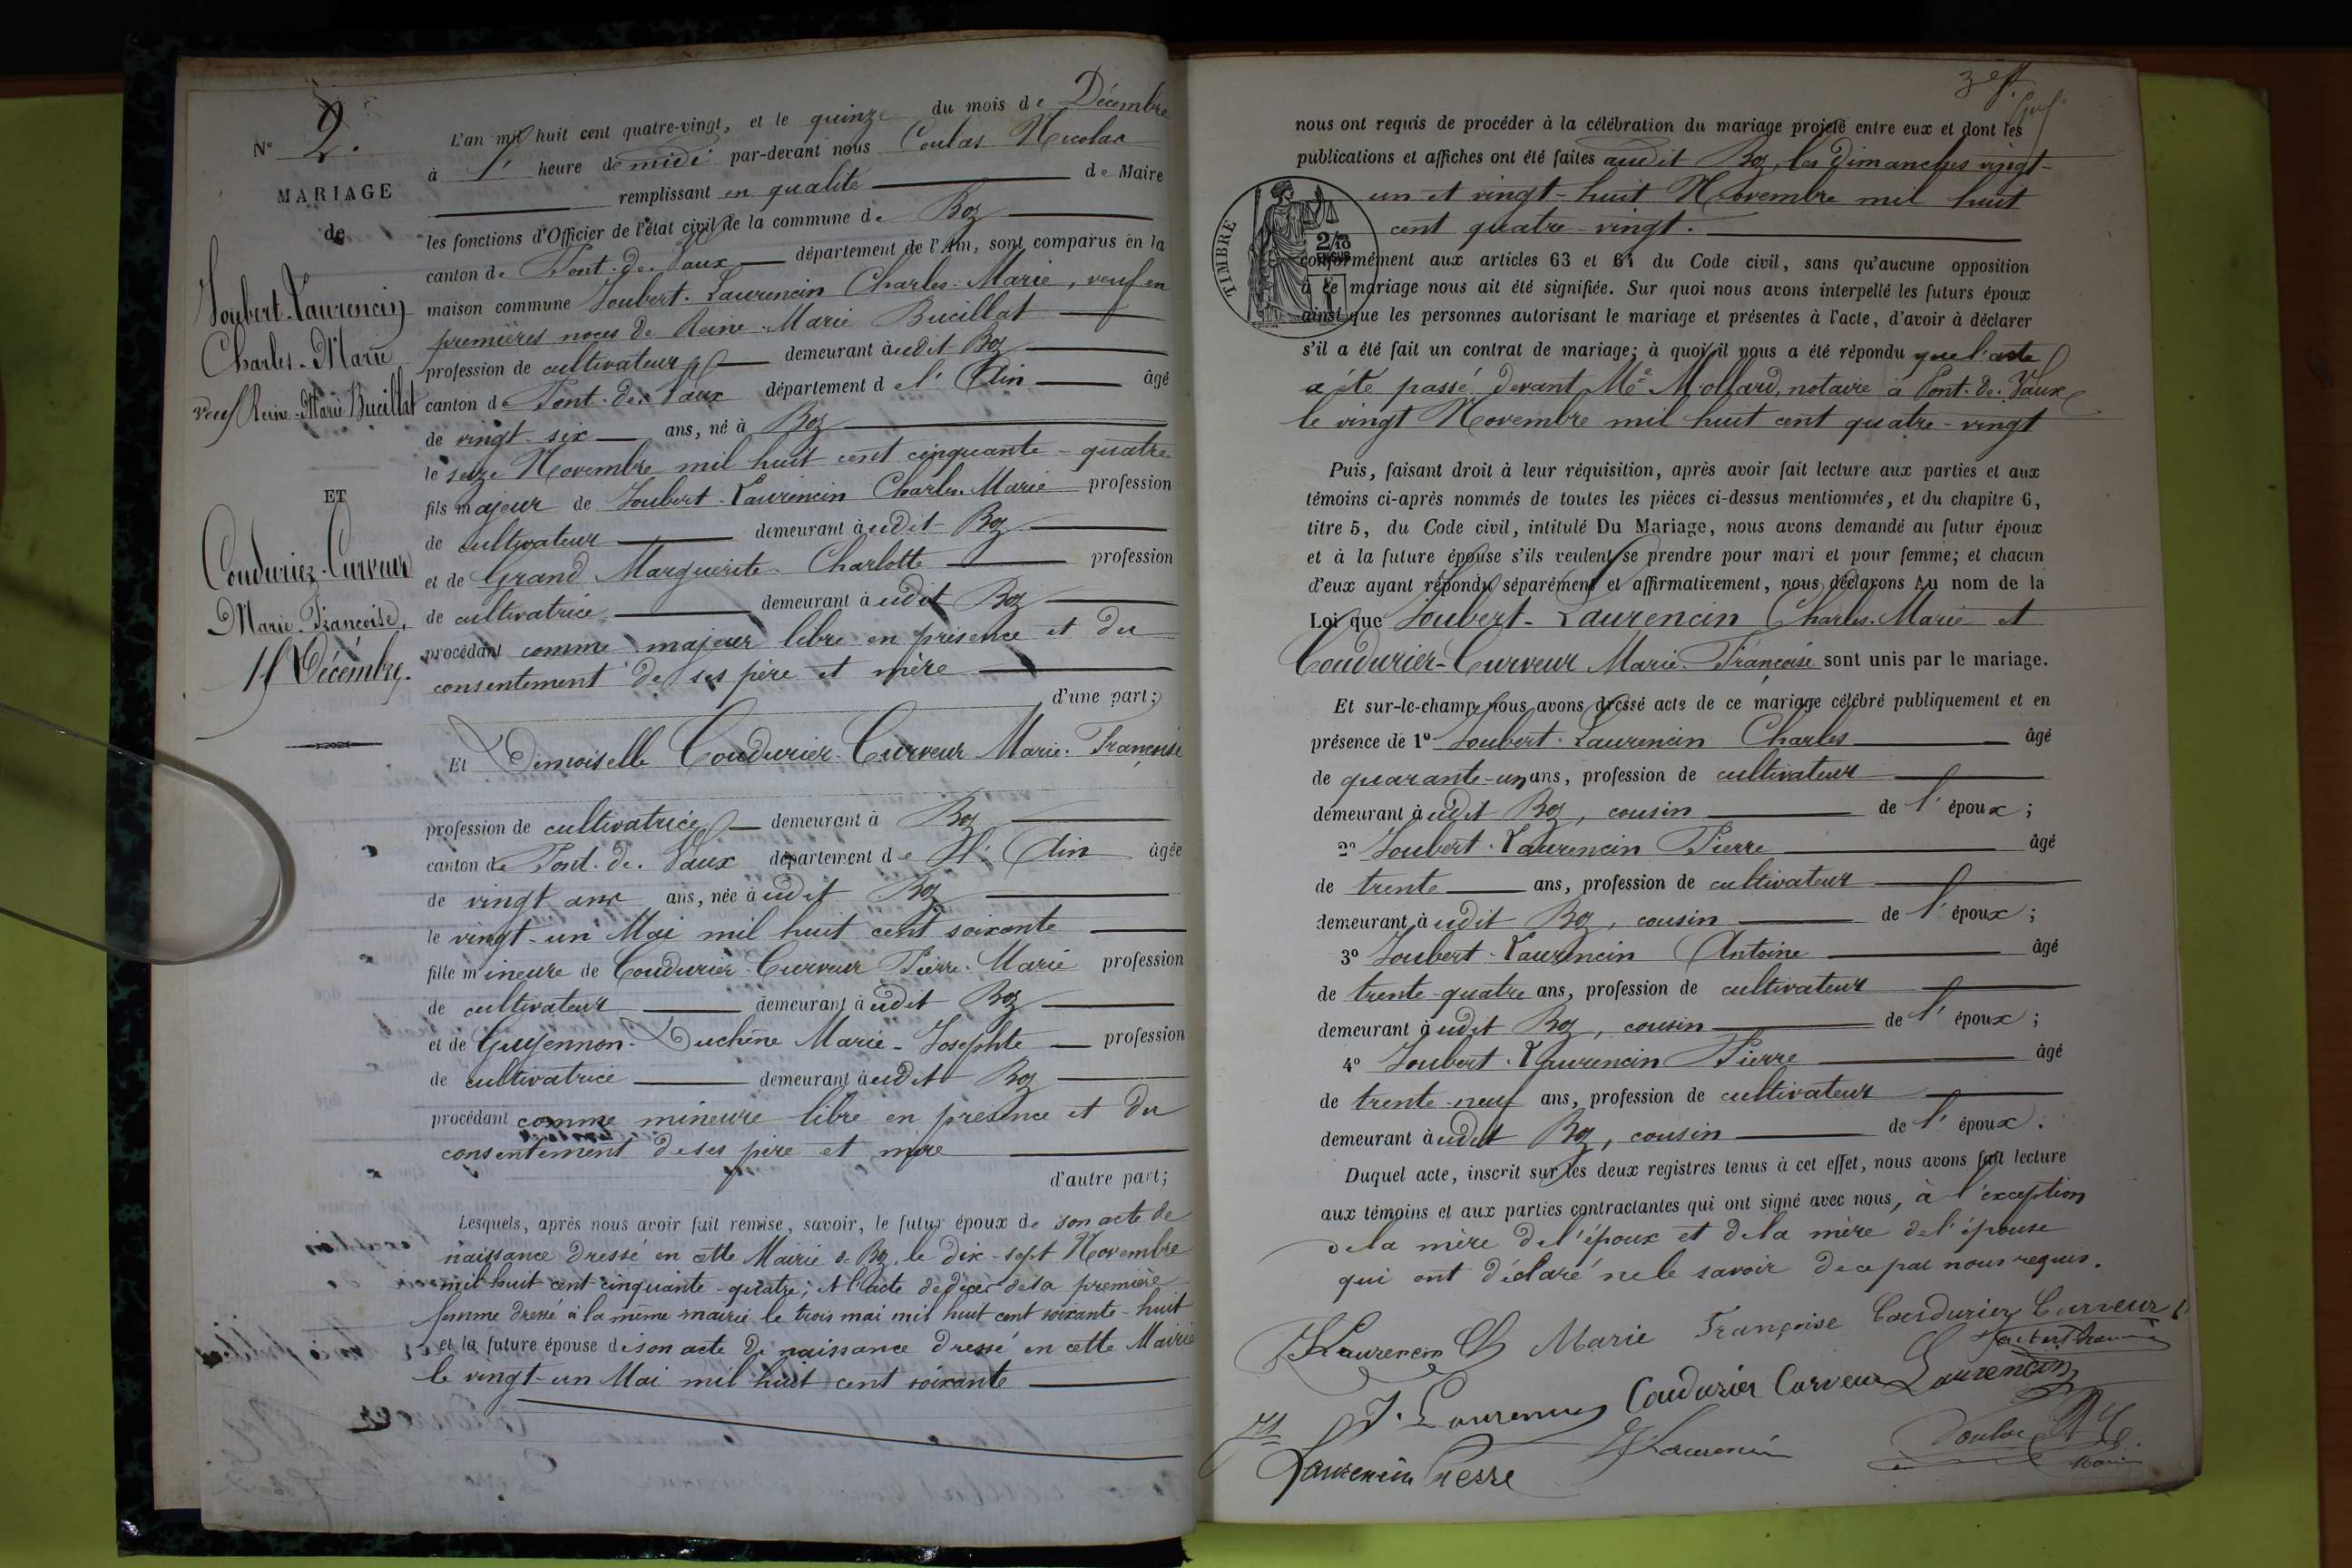 N° 2.
MARIAGE
de
Joubert-Laurencin
Charles-Marie
veuf Reine-Marie Bucillat
ET
Couduriez-Curveur
Marie-Françoise,
15 Décembre.
L'an mil huit cent quatre-vingt, et le quinze du mois de Décembre
à 1 heure de midi par-devant nous Coulas Nicolas
remplissant en qualité de Maire
les fonctions d'Officier de l'état civil de la commune de Boz
canton de Pont-de-Vaux département de l'Ain, sont comparus en la
maison commune Joubert-Laurencin Charles-Marie, veuf en
premières noces de Reine-Marie Bucillat
profession de cultivateur demeurant à udit Boz
canton de Pont-de-Vaux département de l'Ain âgé
de vingt-six ans, né à Boz
le seize Novembre mil huit cent cinquante-quatre
fils majeur de Joubert-Laurencin Charles-Marie profession
de cultivateur demeurant à udit Boz
et de Grand Marguerite-Charlotte profession
de cultivatrice demeurant à udit Boz
procédant comme majeur libre en présence et du
consentement de ses père et mère
d'une part;
Et Demoiselle Coudurier-Curveur Marie-Françoise
profession de cultivatrice demeurant à Boz
canton de Pont-de-Vaux département de l'Ain âgée
de vingt ans ans, née à udit Boz
le vingt-un Mai mil huit cent soixante
fille mineure de Coudurier-Curveur Pierre-Marie profession
de cultivateur demeurant à udit Boz
et de Guyennon-Duchêne Marie-Josephte profession
de cultivatrice demeurant à udit Boz
procédant comme mineure libre en présence et du
consentement de ses père et mère
d'autre part;
Lesquels, après nous avoir fait remise, savoir, le futur époux de son acte de
naissance dressé en cette Mairie de Boz, le dix-sept Novembre
mil huit cent cinquante-quatre; et l'acte de décès de sa première
femme dressé à la même mairie le trois mai mil huit cent soixante-huit
et la future épouse de son acte de naissance dressé en cette Mairie
le vingt-un Mai mil huit cent soixante
nous ont requis de procéder à la célébration du mariage projeté entre eux et dont les
publications et affiches ont été faites audit Boz, les dimanches vingt-
un et vingt-huit Novembre mil huit
cent quatre-vingt.
TIMBRE
2/10
conformément aux articles 63 et 64 du Code civil, sans qu'aucune opposition
à ce mariage nous ait été signifiée. Sur quoi nous avons interpellé les futurs époux
ainsi que les personnes autorisant le mariage et présentes à l'acte, d'avoir à déclarer
s'il a été fait un contrat de mariage; à quoi il nous a été répondu que l'acte
a été passé devant Me Mollard, notaire à Pont-de-Vaux
le vingt Novembre mil huit cent quatre-vingt
Puis, faisant droit à leur réquisition, après avoir fait lecture aux parties et aux
témoins ci-après nommés de toutes les pièces ci-dessus mentionnées, et du chapitre 6,
titre 5, du Code civil, intitulé Du Mariage, nous avons demandé au futur époux
et à la future épouse s'ils veulent se prendre pour mari et pour femme; et chacun
d'eux ayant répondu séparément et affirmativement, nous déclarons Au nom de la
Loi que Joubert-Laurencin Charles-Marie et
Coudurier-Curveur Marie-Françoise sont unis par le mariage.
Et sur-le-champ nous avons dressé acte de ce mariage célébré publiquement et en
présence de 1° Joubert-Laurencin Charles âgé
de quarante-un ans, profession de cultivateur
demeurant à udit Boz, cousin de l'époux;
2° Joubert-Laurencin Pierre âgé
de trente ans, profession de cultivateur
demeurant à udit Boz, cousin de l'époux;
3° Joubert-Laurencin Antoine âgé
de trente-quatre ans, profession de cultivateur
demeurant à udit Boz, cousin de l'époux;
4° Joubert-Laurencin Pierre âgé
de trente-neuf ans, profession de cultivateur
demeurant à udit Boz, cousin de l'époux.
Duquel acte, inscrit sur les deux registres tenus à cet effet, nous avons fait lecture
aux témoins et aux parties contractantes qui ont signé avec nous, à l'exception
de la mère de l'époux et de la mère de l'épouse
qui ont déclaré ne le savoir de ce par nous requis.
JLaurencin Ch Marie Françoise Coudurier Curveur
J. Laurencin Coudurier Curveur Laurencin
Laurencin Pierre JLaurencin Coulas